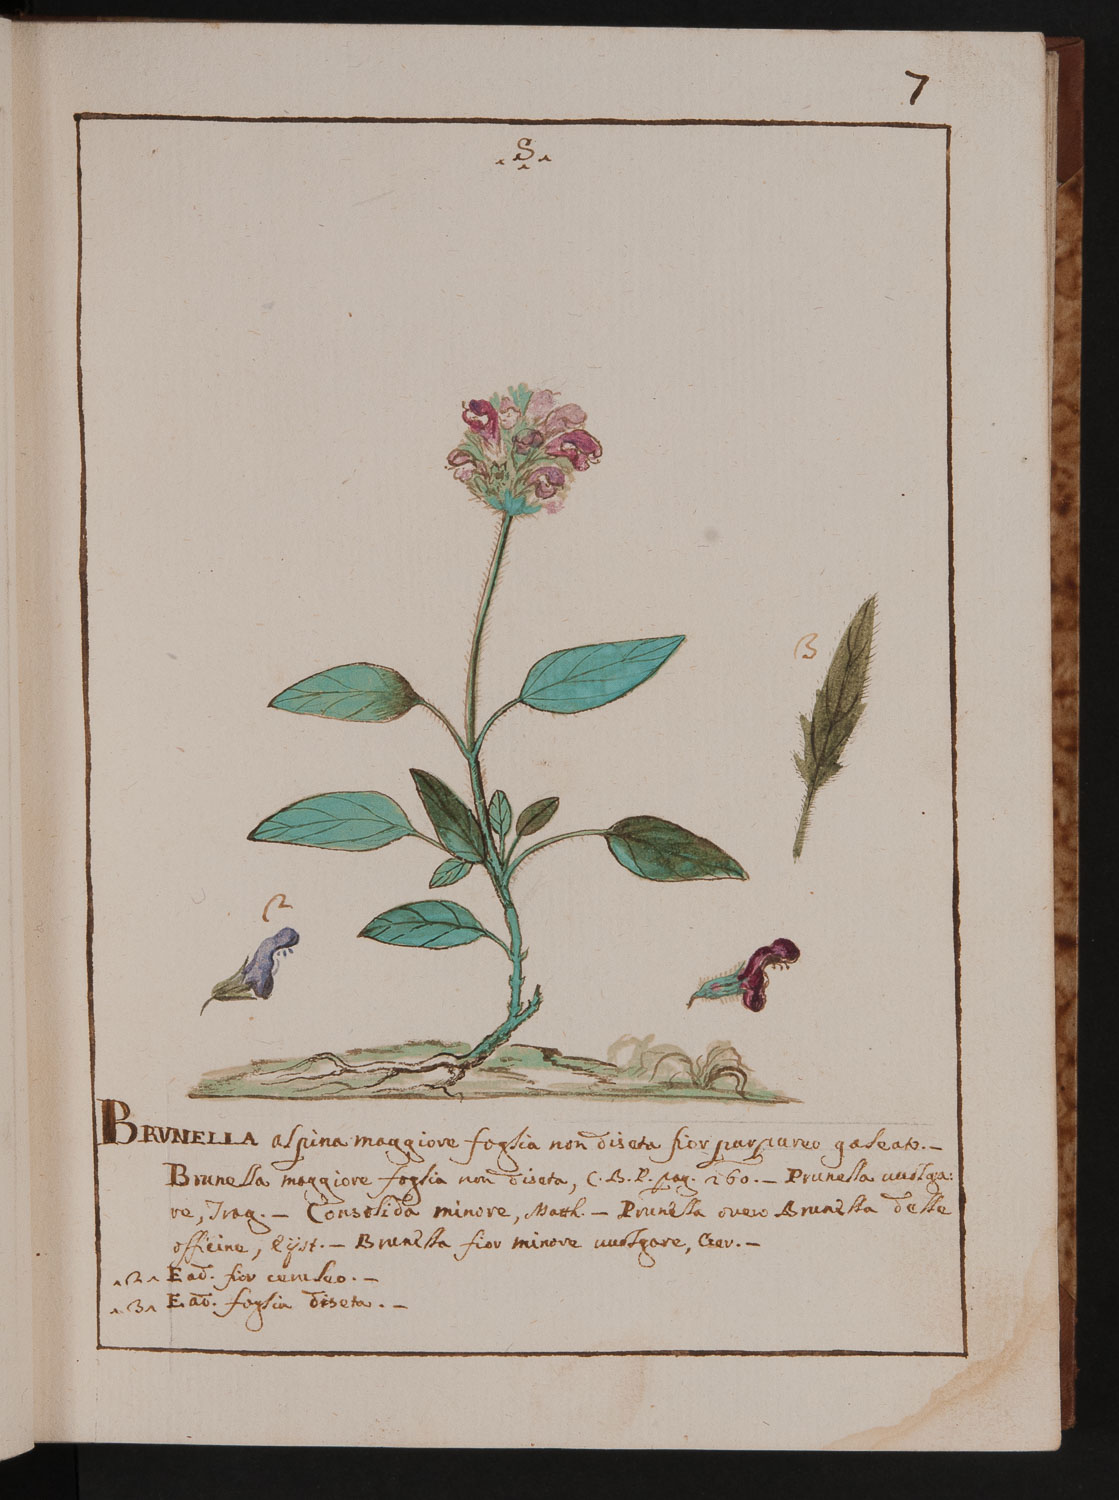 7
S
3
2
BRVNELLA alpina maggiore foglia non diseta fior purpureo galeato.—
Brunella maggiore foglia non diseta, C.B.P. pag. 260.— Prunella uulga:
re, Trag.— Consolida minore, Matth.— Prunella ouero Brunella delle
officine, Eÿst.— Brunella fior minore uulgare, Ger.—
.2. Ead. fior ceruleo.—
.3. Ead. foglia diseta.—